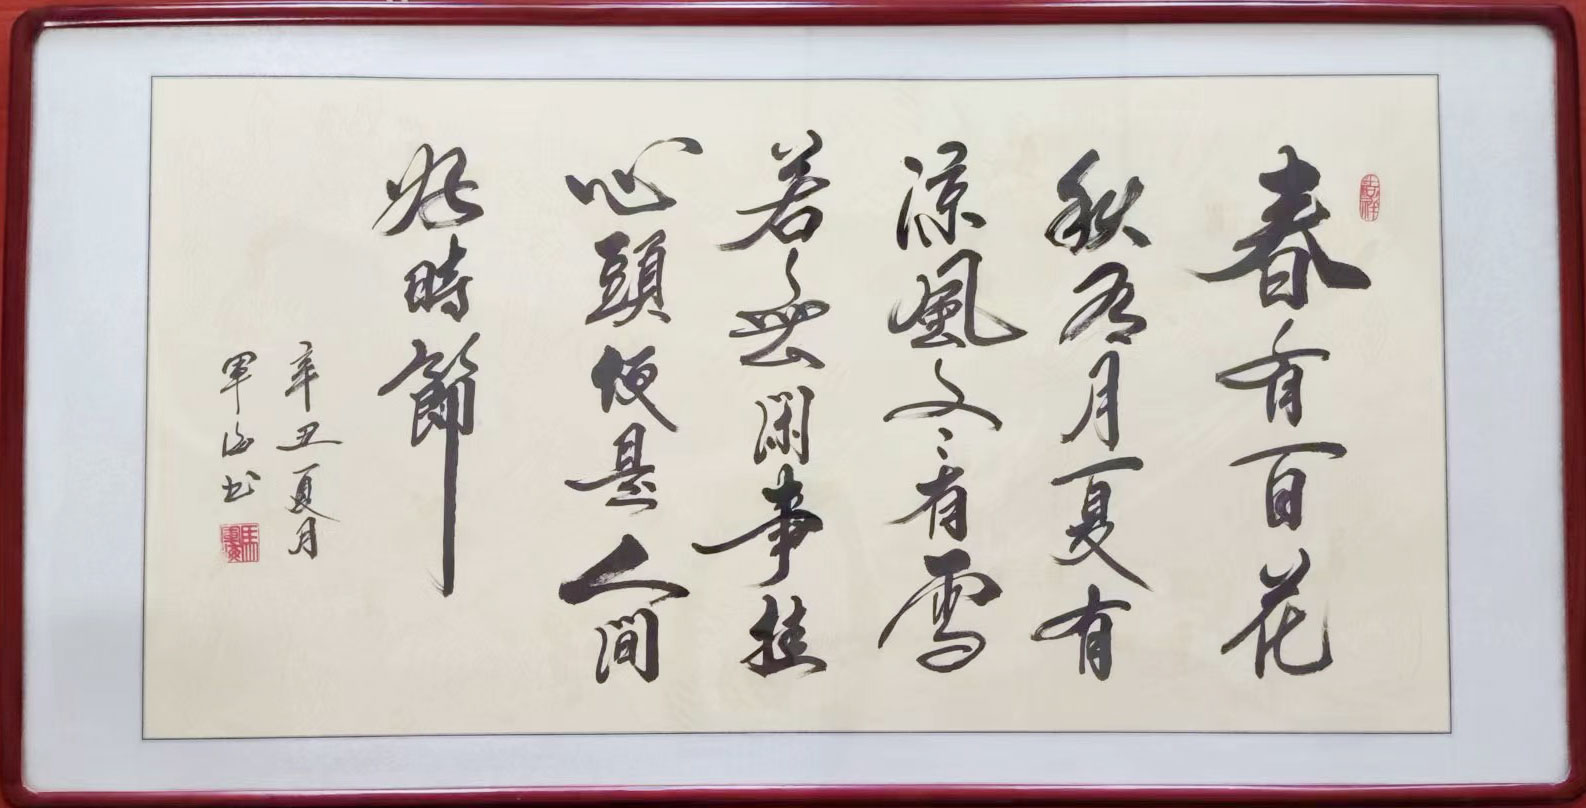 吉祥
春有百花
秋有月夏有
涼風冬有雪
若無閑事挂
心頭便是人間
好時節
辛丑夏月
軍海书